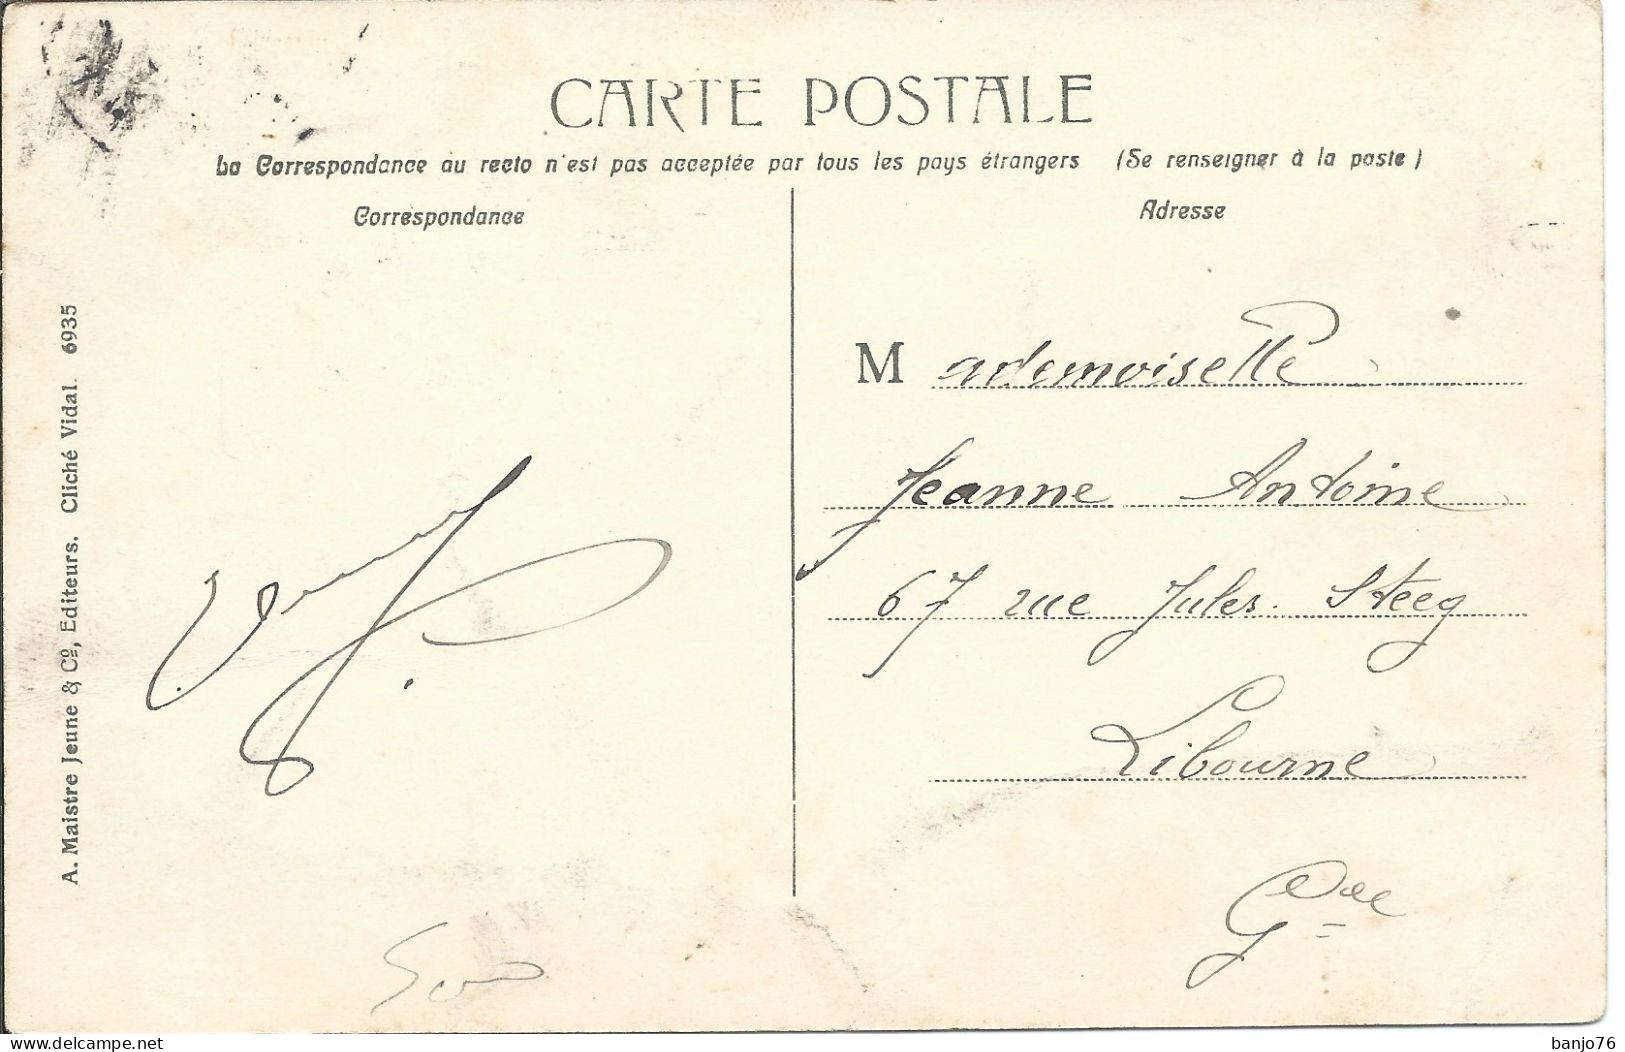 CARTE POSTALE
La Correspondance au recto n'est pas acceptée par tous les pays étrangers (Se renseigner à la poste)
Correspondance
Adresse
A. Maistre Jeune & Cº, Editeurs. Cliché Vidal. 6935
Mademoiselle
Jeanne Antoine
67 rue Jules Steeg
Libourne
Gde
delcampe.net
banjo76